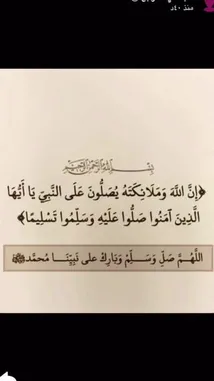 منذ ٤٠د
بسم الله الرحمن الرحيم
﴿إِنَّ اللَّهَ وَمَلَائِكَتَهُ يُصَلُّونَ عَلَى النَّبِيِّ يَا أَيُّهَا
الَّذِينَ آمَنُوا صَلُّوا عَلَيْهِ وَسَلِّمُوا تَسْلِيمًا﴾
اللَّهُمَّ صَلِّ وَسَلِّمْ وَبَارِكْ على نَبِيِّنَا مُحمَّد ﷺ